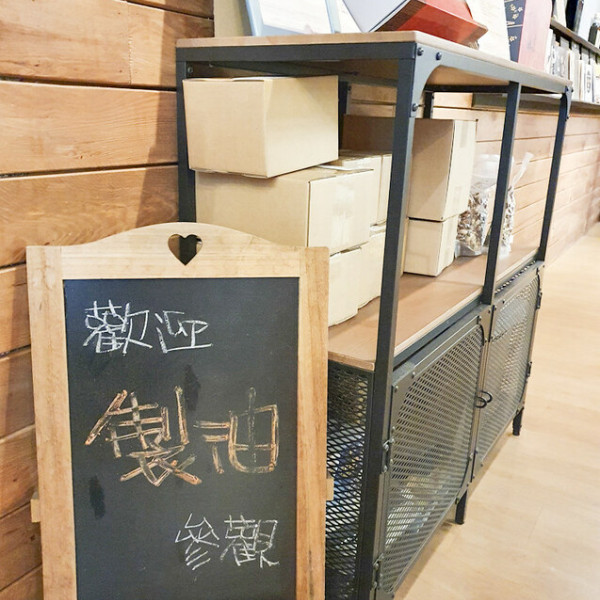 歡迎
製油
參觀